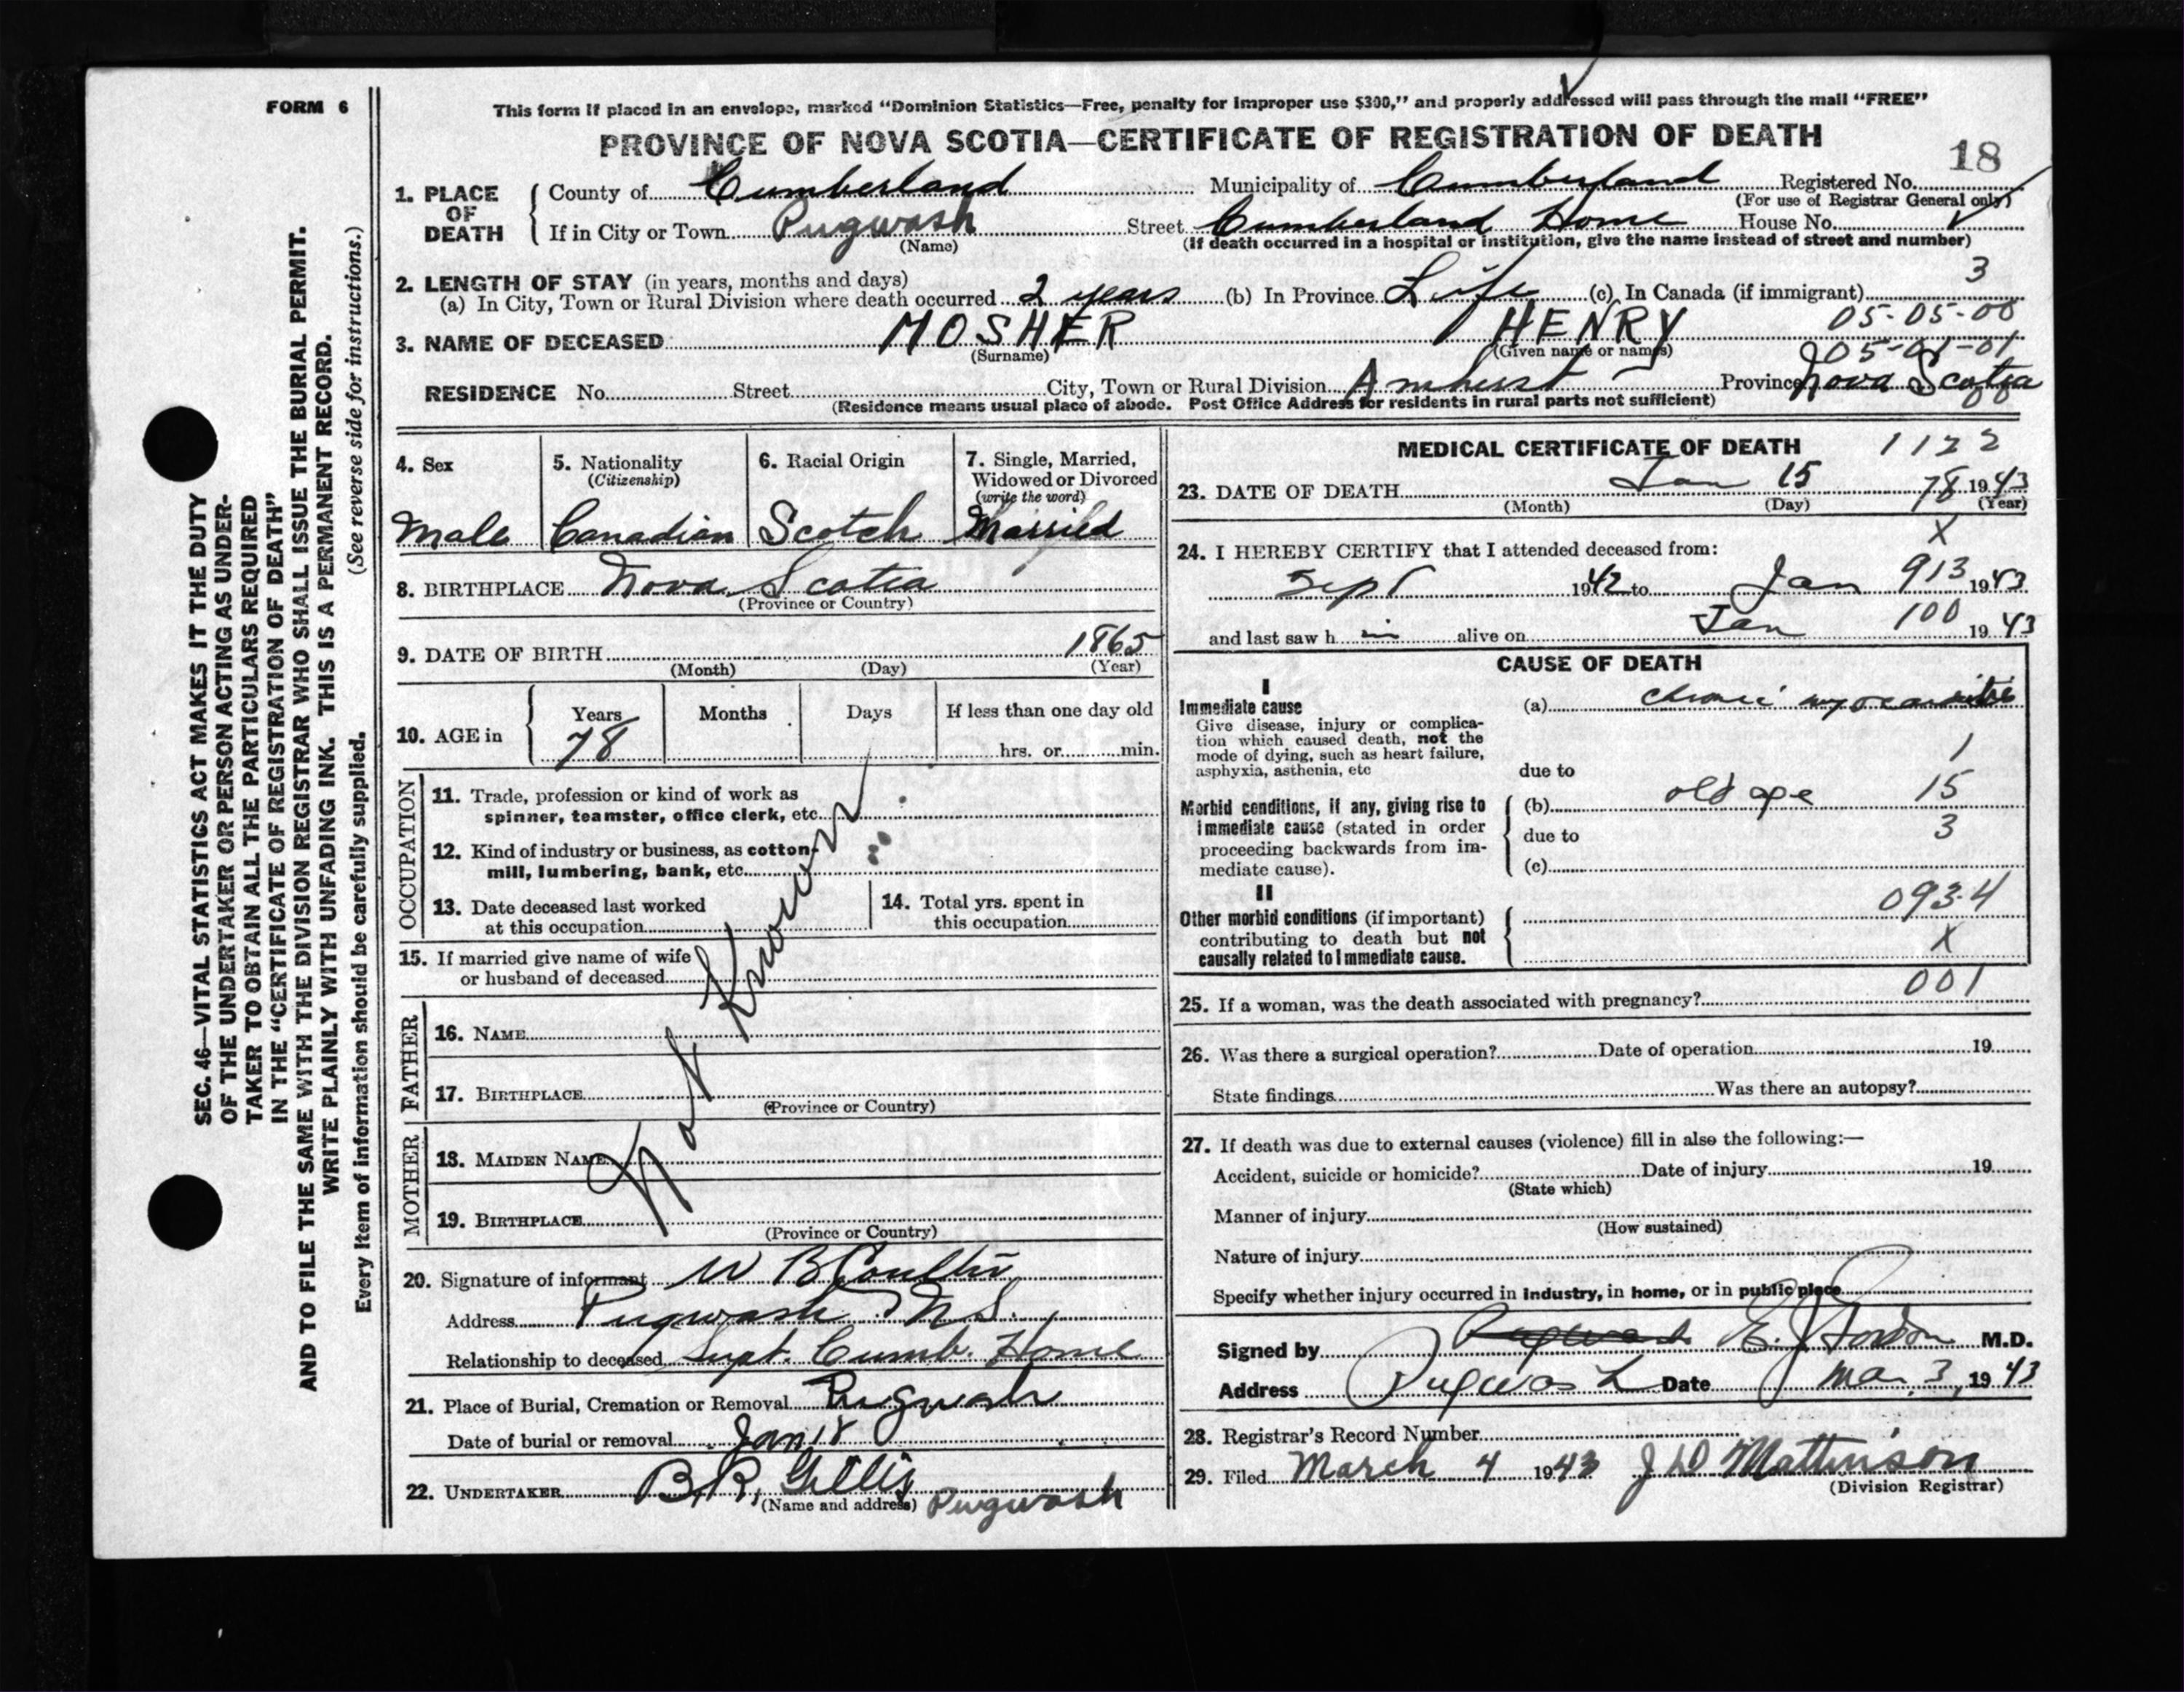 FORM 6
This form if placed in an envelope, marked "Dominion Statistics—Free, penalty for improper use $300," and properly addressed will pass through the mail "FREE"
PROVINCE OF NOVA SCOTIA—CERTIFICATE OF REGISTRATION OF DEATH
18
1. PLACE OF DEATH
County of Cumberland Municipality of Cumberland Registered No.
(For use of Registrar General only)
If in City or Town Pugwash Street Cumberland Home House No.
(Name) (If death occurred in a hospital or institution, give the name instead of street and number)
3
2. LENGTH OF STAY (in years, months and days)
(a) In City, Town or Rural Division where death occurred 2 years (b) In Province Life (c) In Canada (if immigrant)
05-05-00
3. NAME OF DECEASED MOSHER HENRY
(Surname) (Given name or names)
05-01-01
RESIDENCE No. Street City, Town or Rural Division Amherst Province Nova Scotia
(Residence means usual place of abode. Post Office Address for residents in rural parts not sufficient)
4. Sex
Male
5. Nationality
(Citizenship)
Canadian
6. Racial Origin
Scotch
7. Single, Married,
Widowed or Divorced
(write the word)
Married
8. BIRTHPLACE Nova Scotia
(Province or Country)
9. DATE OF BIRTH 1865
(Month) (Day) (Year)
10. AGE in
Years Months Days If less than one day old
78 hrs. or min.
OCCUPATION
11. Trade, profession or kind of work as
spinner, teamster, office clerk, etc.
12. Kind of industry or business, as cotton-
mill, lumbering, bank, etc.
13. Date deceased last worked
at this occupation
14. Total yrs. spent in
this occupation
15. If married give name of wife
or husband of deceased
Not Known
FATHER
16. NAME
17. BIRTHPLACE
(Province or Country)
MOTHER
18. MAIDEN NAME
19. BIRTHPLACE
(Province or Country)
20. Signature of informant W B Coulter
Address Pugwash N.S.
Relationship to deceased Supt. Cumb. Home
21. Place of Burial, Cremation or Removal Pugwash
Date of burial or removal Jan 18
22. UNDERTAKER B.R. Gillis
(Name and address) Pugwash
MEDICAL CERTIFICATE OF DEATH 1122
23. DATE OF DEATH Jan 15 78 1943
(Month) (Day) (Year)
X
24. I HEREBY CERTIFY that I attended deceased from:
Sept 1942 to Jan 913 1943
and last saw h im alive on Jan 100 1943
CAUSE OF DEATH
I
Immediate cause
Give disease, injury or complica-
tion which caused death, not the
mode of dying, such as heart failure,
asphyxia, asthenia, etc
(a) chronic myocarditis
1
due to
Morbid conditions, if any, giving rise to
immediate cause (stated in order
proceeding backwards from im-
mediate cause).
(b) old age 15
due to 3
(c)
II
Other morbid conditions (if important)
contributing to death but not
causally related to immediate cause.
093.4
X
001
25. If a woman, was the death associated with pregnancy?
26. Was there a surgical operation? Date of operation 19
State findings Was there an autopsy?
27. If death was due to external causes (violence) fill in also the following:—
Accident, suicide or homicide? Date of injury 19
(State which)
Manner of injury
(How sustained)
Nature of injury
Specify whether injury occurred in industry, in home, or in public place
Signed by Pugwash E. J. Gordon M.D.
Address Pugwash Date Mar 3, 1943
28. Registrar's Record Number
29. Filed March 4 1943 J W Mattinson
(Division Registrar)
SEC. 46—VITAL STATISTICS ACT MAKES IT THE DUTY
OF THE UNDERTAKER OR PERSON ACTING AS UNDER-
TAKER TO OBTAIN ALL THE PARTICULARS REQUIRED
IN THE "CERTIFICATE OF REGISTRATION OF DEATH"
AND TO FILE THE SAME WITH THE DIVISION REGISTRAR WHO SHALL ISSUE THE BURIAL PERMIT.
WRITE PLAINLY WITH UNFADING INK. THIS IS A PERMANENT RECORD.
Every item of information should be carefully supplied. (See reverse side for instructions.)